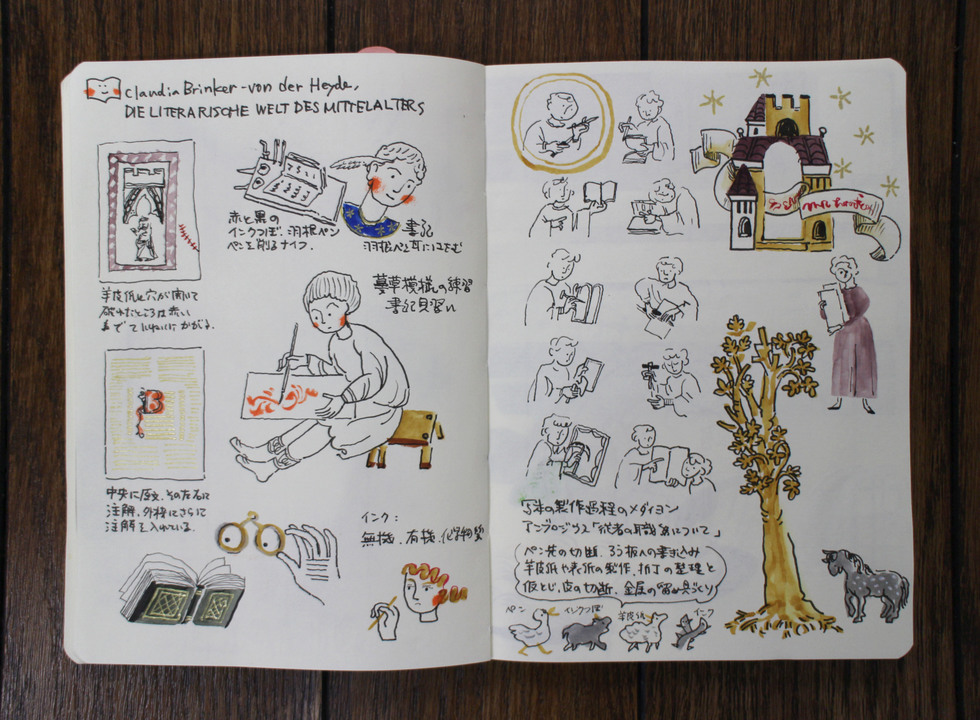 Claudia Brinker-von der Heyde,
DIE LITERARISCHE WELT DES MITTELALTERS
赤と黒の
インクつぼ、羽根ペン
ペンを削るナイフ.
書記
羽根ペン耳にはさむ
羊皮紙に穴が開いて
破れたところは赤い
蔓草模様の練習
書記見習い
中央に原文、その左右に
注解、外枠にさらに
注解を入れている.
インク:
無機、有機、化学物質
写本の製作過程のメダイヨン
アンブロジウス「従者の職務について」
ペン先の切断、ろう板への書き込み
羊皮紙や表紙の製作、折丁の整理と
仮とじ、皮の切断、金属の留め具づくり
ペン
インクつぼ
羊皮紙
インク